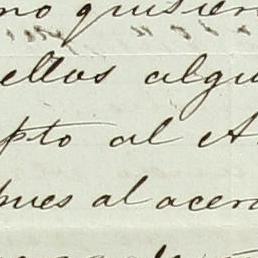 mo quisier
ellos algu
pto al A
pues al acer